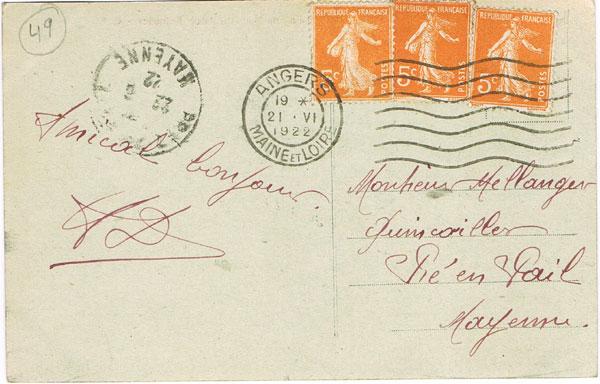 49
REPUBLIQUE FRANÇAISE
5c POSTES
REPUBLIQUE FRANÇAISE
5c POSTES
REPUBLIQUE FRANÇAISE
5c POSTES
ANGERS
19 *
21 · VI
1922
MAINE ET LOIRE
MAYENNE
22
Amical bonjour.
Monsieur Mellanger
Quincailler
Pré en Pail
Mayenne.